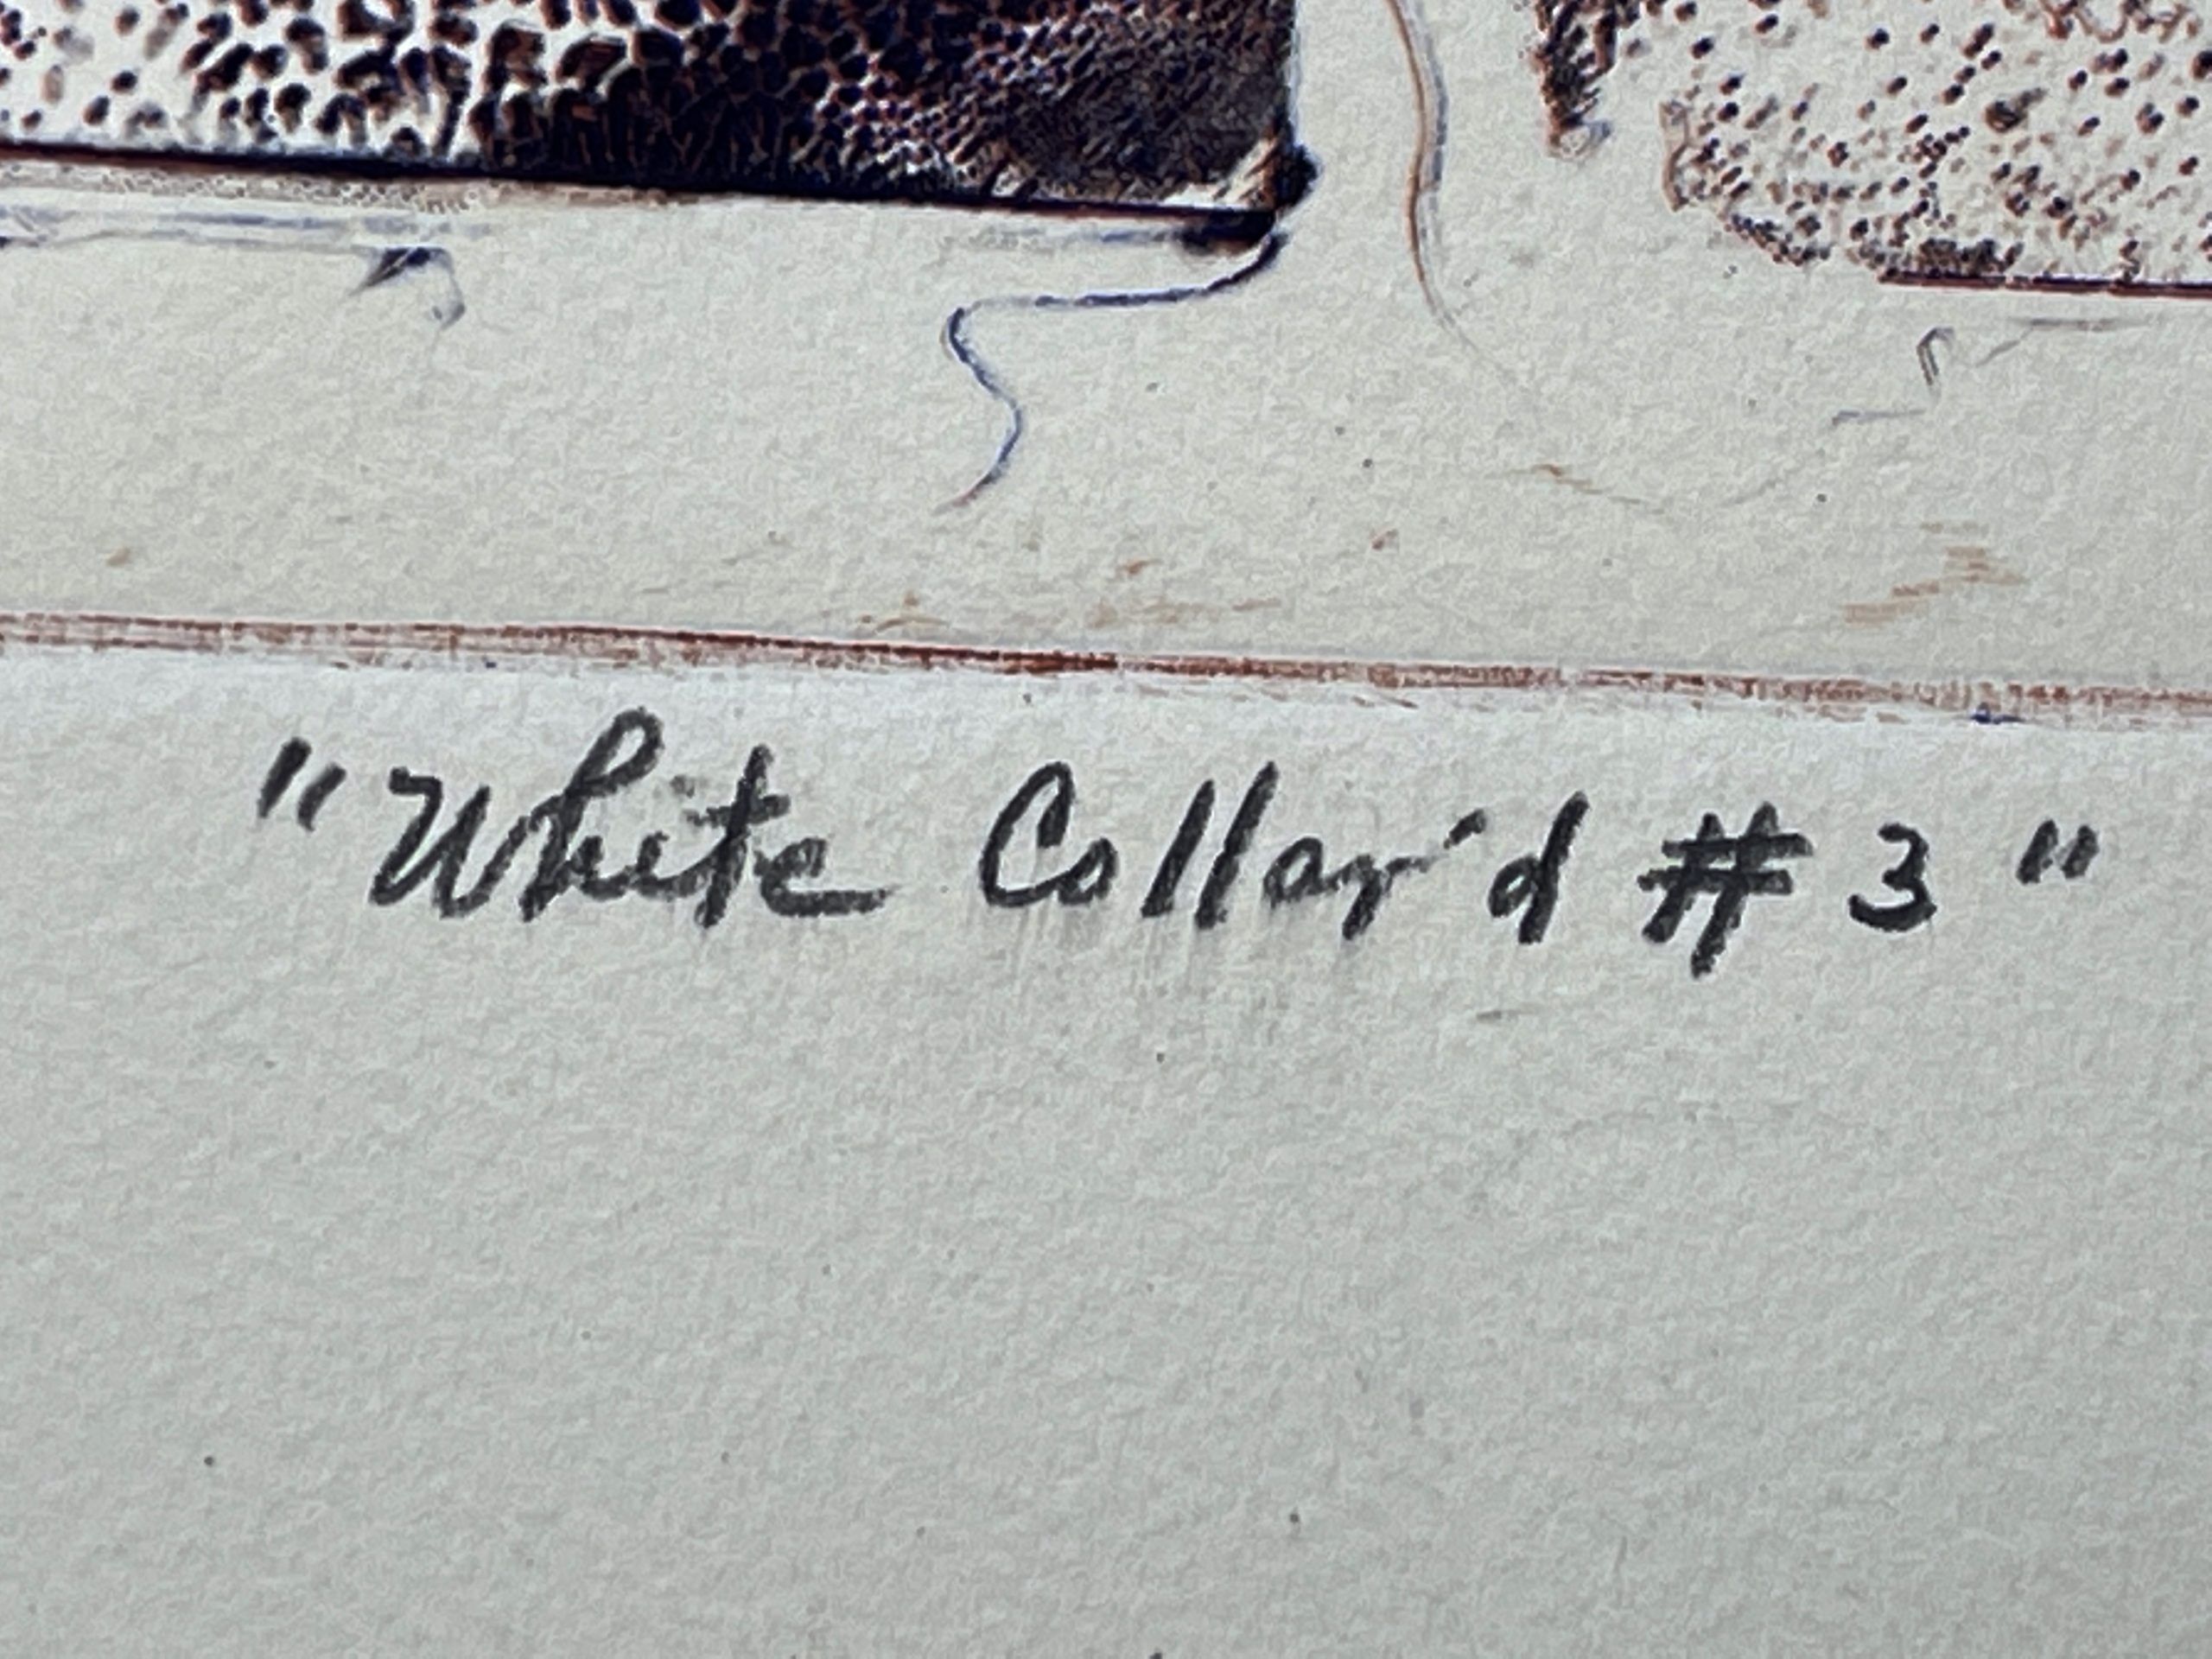 "White Collar'd # 3"